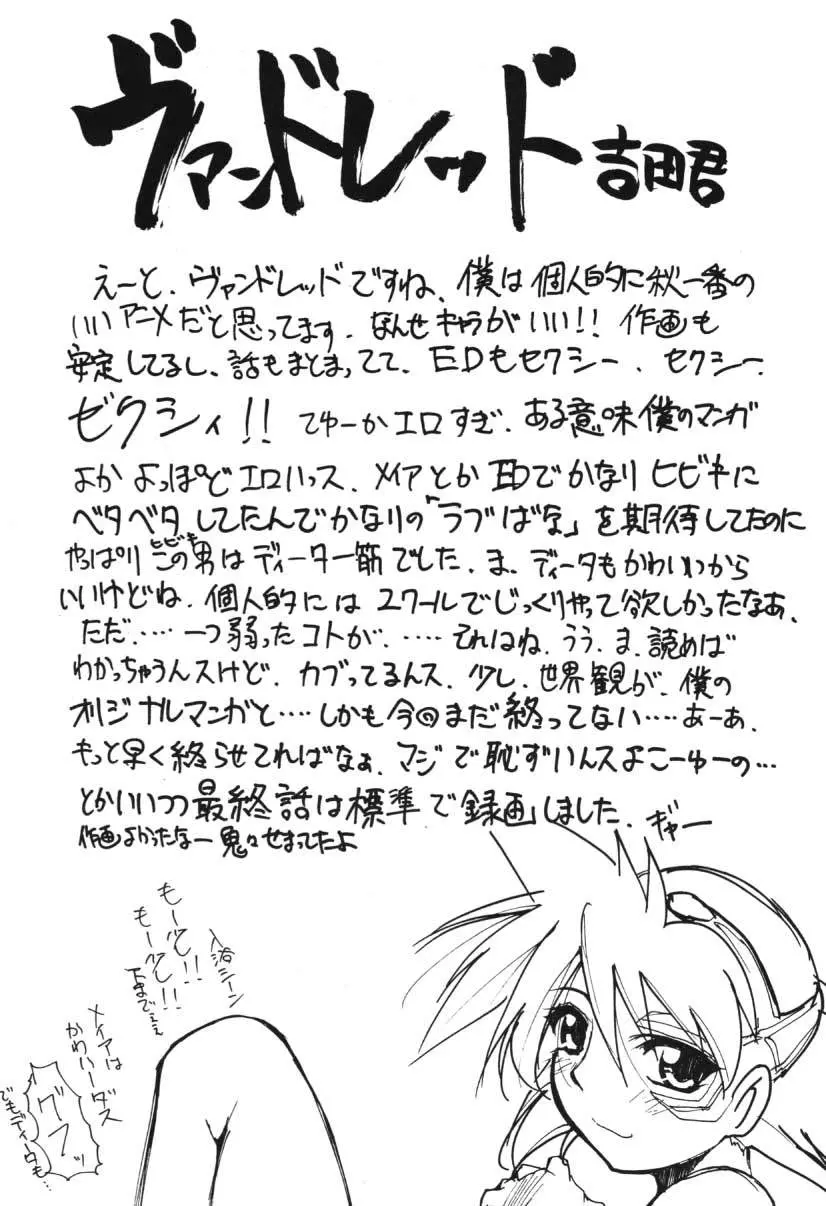 ヴァンドレッド 吉田君
えーと、ヴァンドレッドですね、僕は個人的に秋一番の
いいアニメだと思ってます、なんせキャラがいい!! 作画も
安定してるし、話もまとまってて、EDもセクシー、セクシー、
ゼクシィ!! てゆーかエロすぎ、ある意味僕のマンガ
よかよっぽどエロいっス、メイアとかEDでかなりヒビキに
ベタベタしてたんでかなりの「ラブばな」を期待してたのに
やっぱりこの男はディータ一筋でした、ま、ディータもかわいいから
ヒビキ
いいけどね、個人的には2クールでじっくりやって欲しかったなぁ、
ただ、…… 一つ弱ったコトが、…… それはね、うぅ、ま、読めば
わかっちゃうんスけど、カブってるんス、少し、世界観が、僕の
オリジナルマンガと…… しかも今回まだ終ってない…… あーあ、
もっと早く終らせてればなぁ、マジで恥ずいんスよこーゆーの…
とかいいつつ最終話は標準で録画しました、ギャー
作画よかったなー 鬼々せまってたよ
入浴シーン
もー少し!!
もー少し!!
下までぇぇ
メイアは
かわいーダス
グフッ
でもディータも…